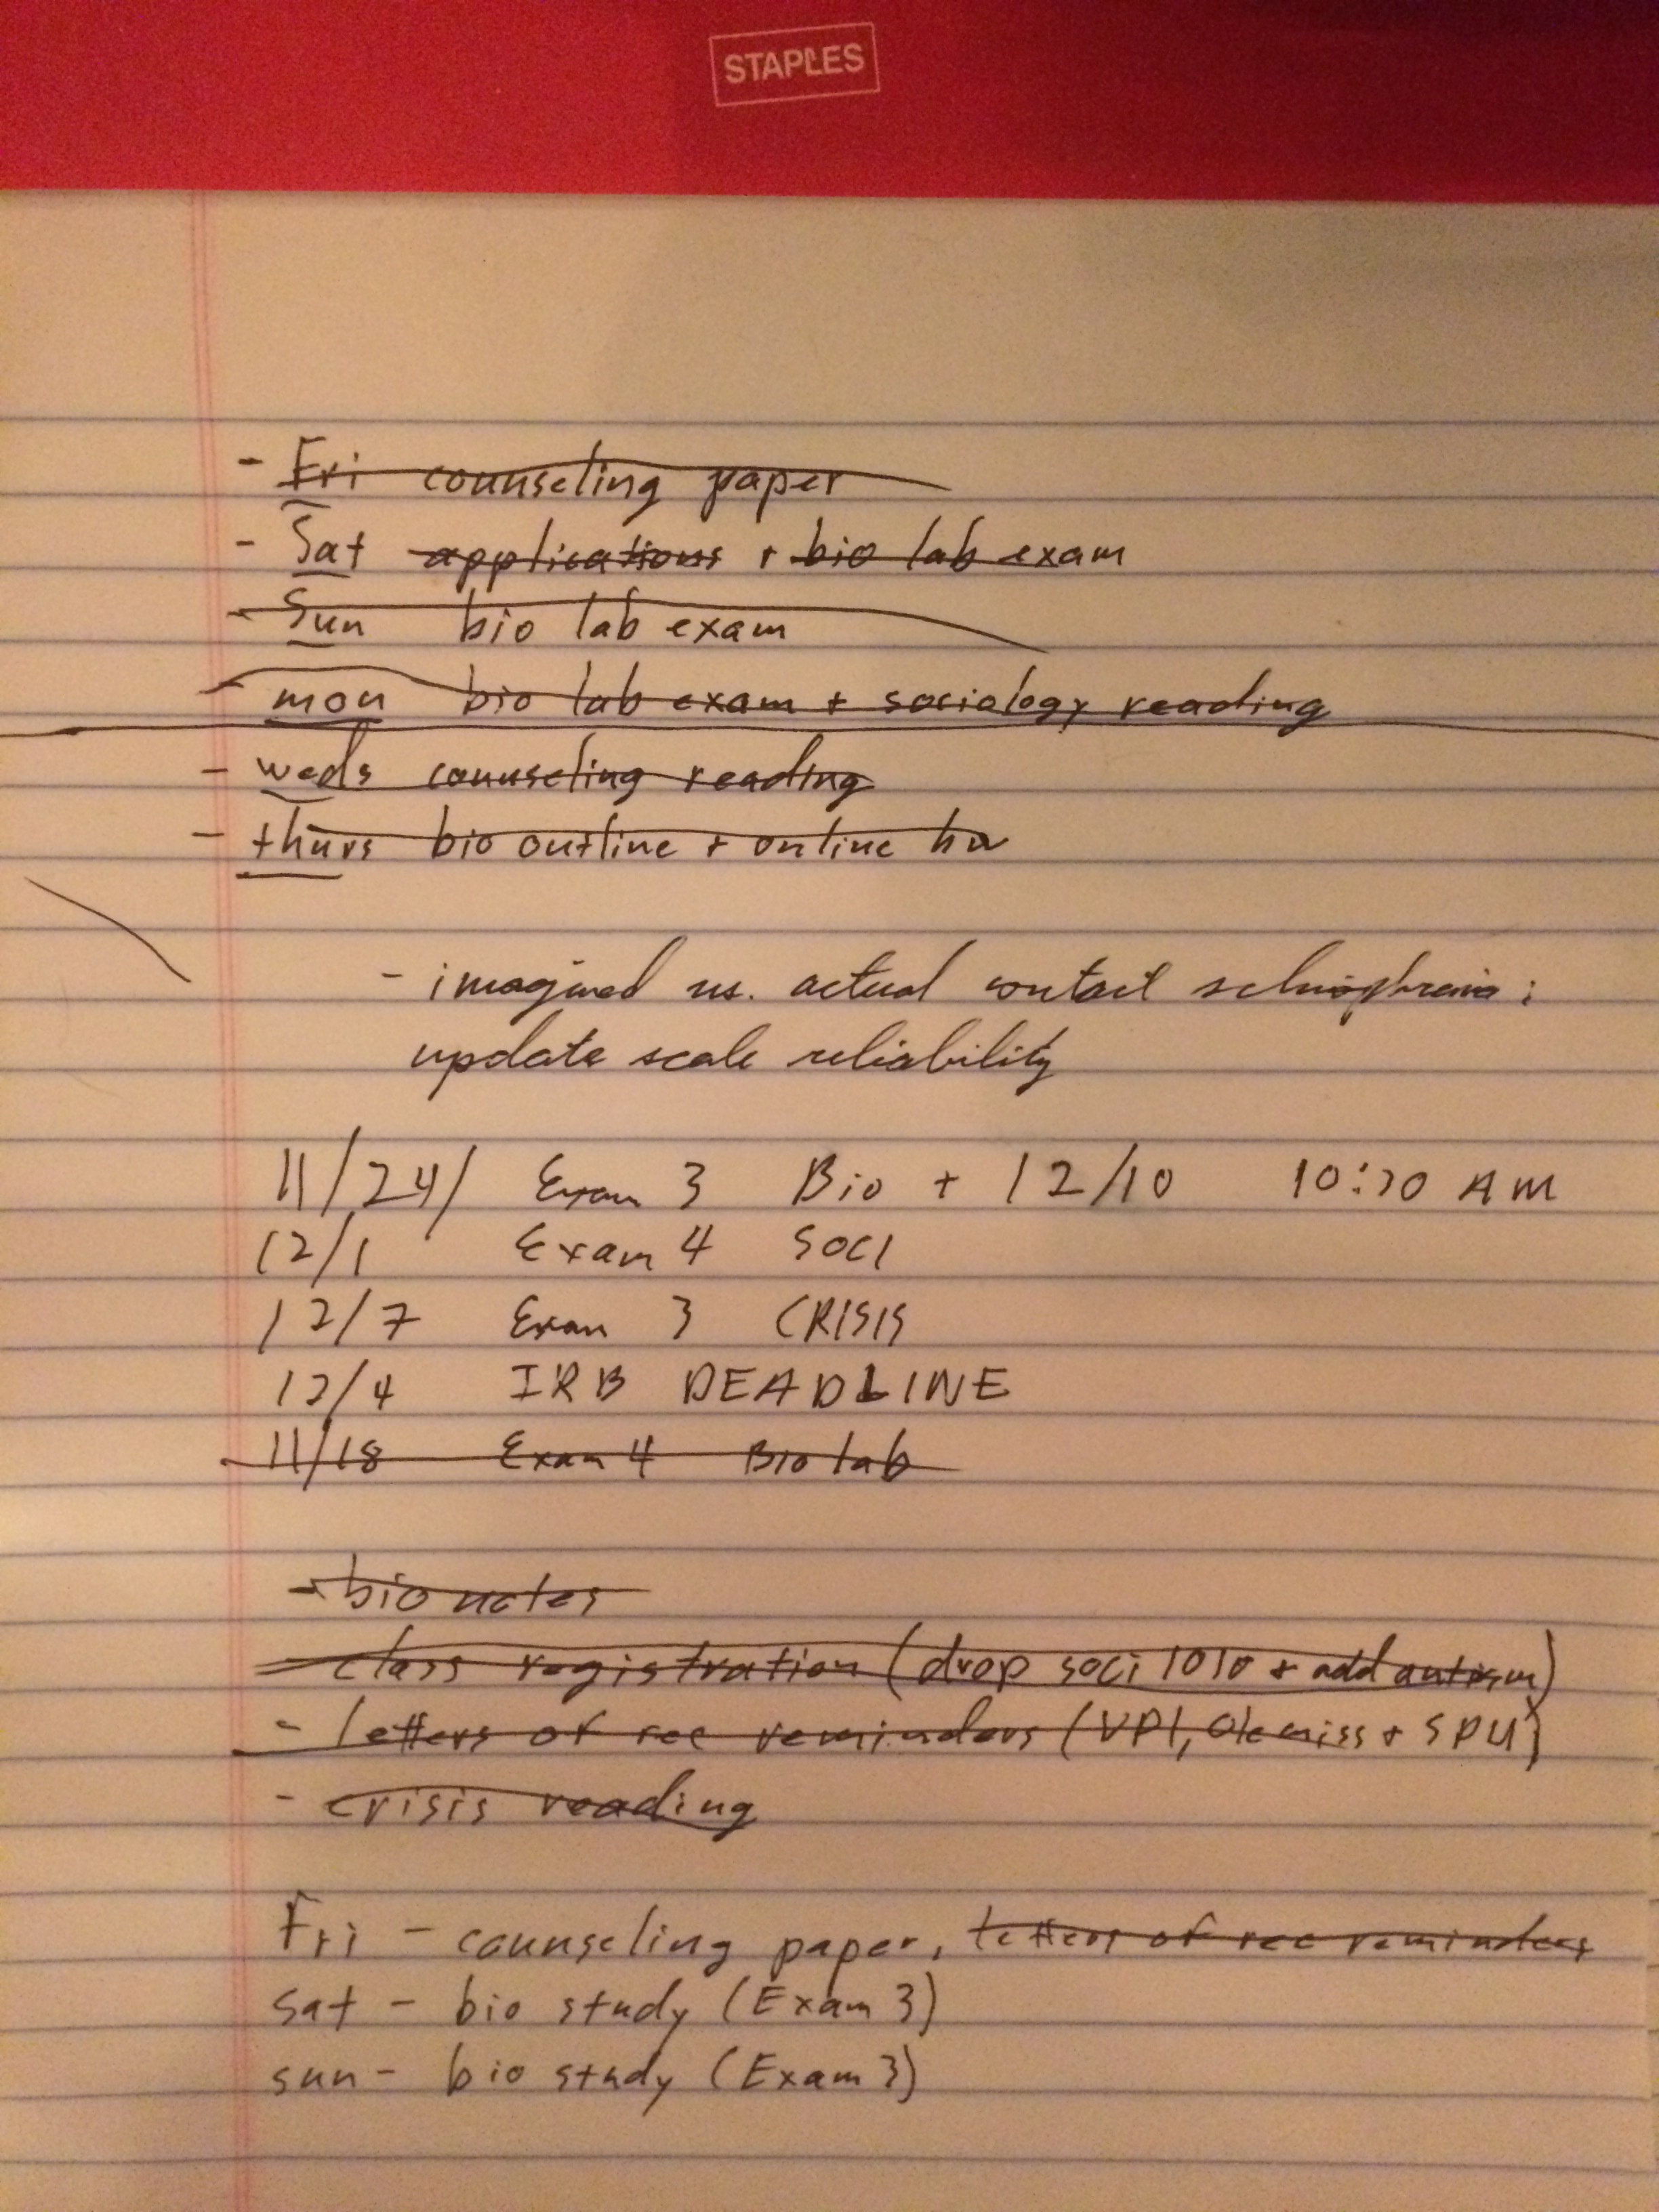 STAPLES
- Fri counseling paper
- Sat applications + bio lab exam
- Sun bio lab exam
- mon bio lab exam + sociology reading
- weds counseling reading
- thurs bio outline + online hw
- imagined vs. actual contact schizophrenia:
update scale reliability
11/24/ Exam 3 Bio + 12/10 10:30 AM
12/1 Exam 4 SOCI
12/7 Exam 3 CRISIS
12/4 IRB DEADLINE
11/18 Exam 4 Bio lab
- bio notes
- class registration (drop soci 1010 + add autism)
- letters of rec reminders (VPI, Ole miss + SPU)
- crisis reading
Fri - counseling paper, letters of rec reminders
sat - bio study (Exam 3)
sun - bio study (Exam 3)